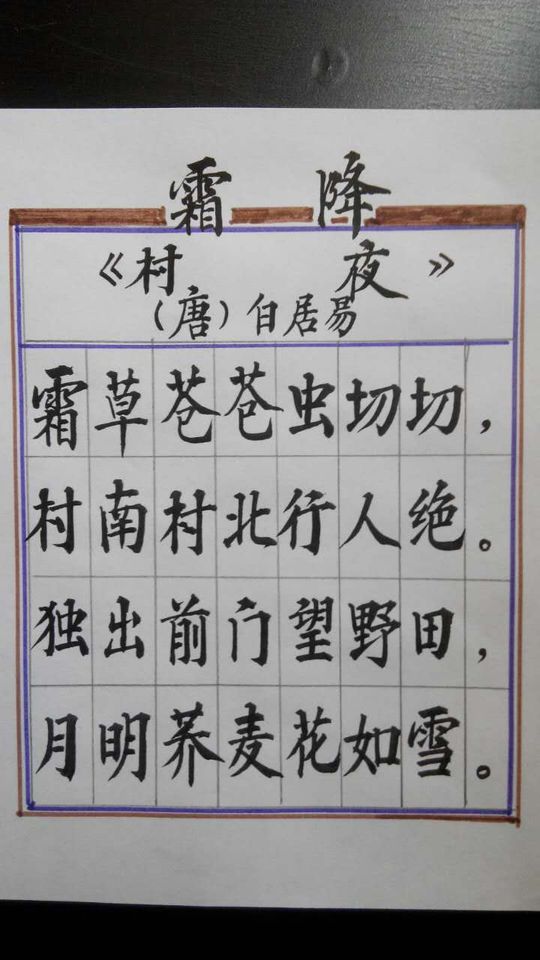 霜降
《村夜》
（唐）白居易
霜草苍苍虫切切，
村南村北行人绝。
独出前门望野田，
月明荞麦花如雪。